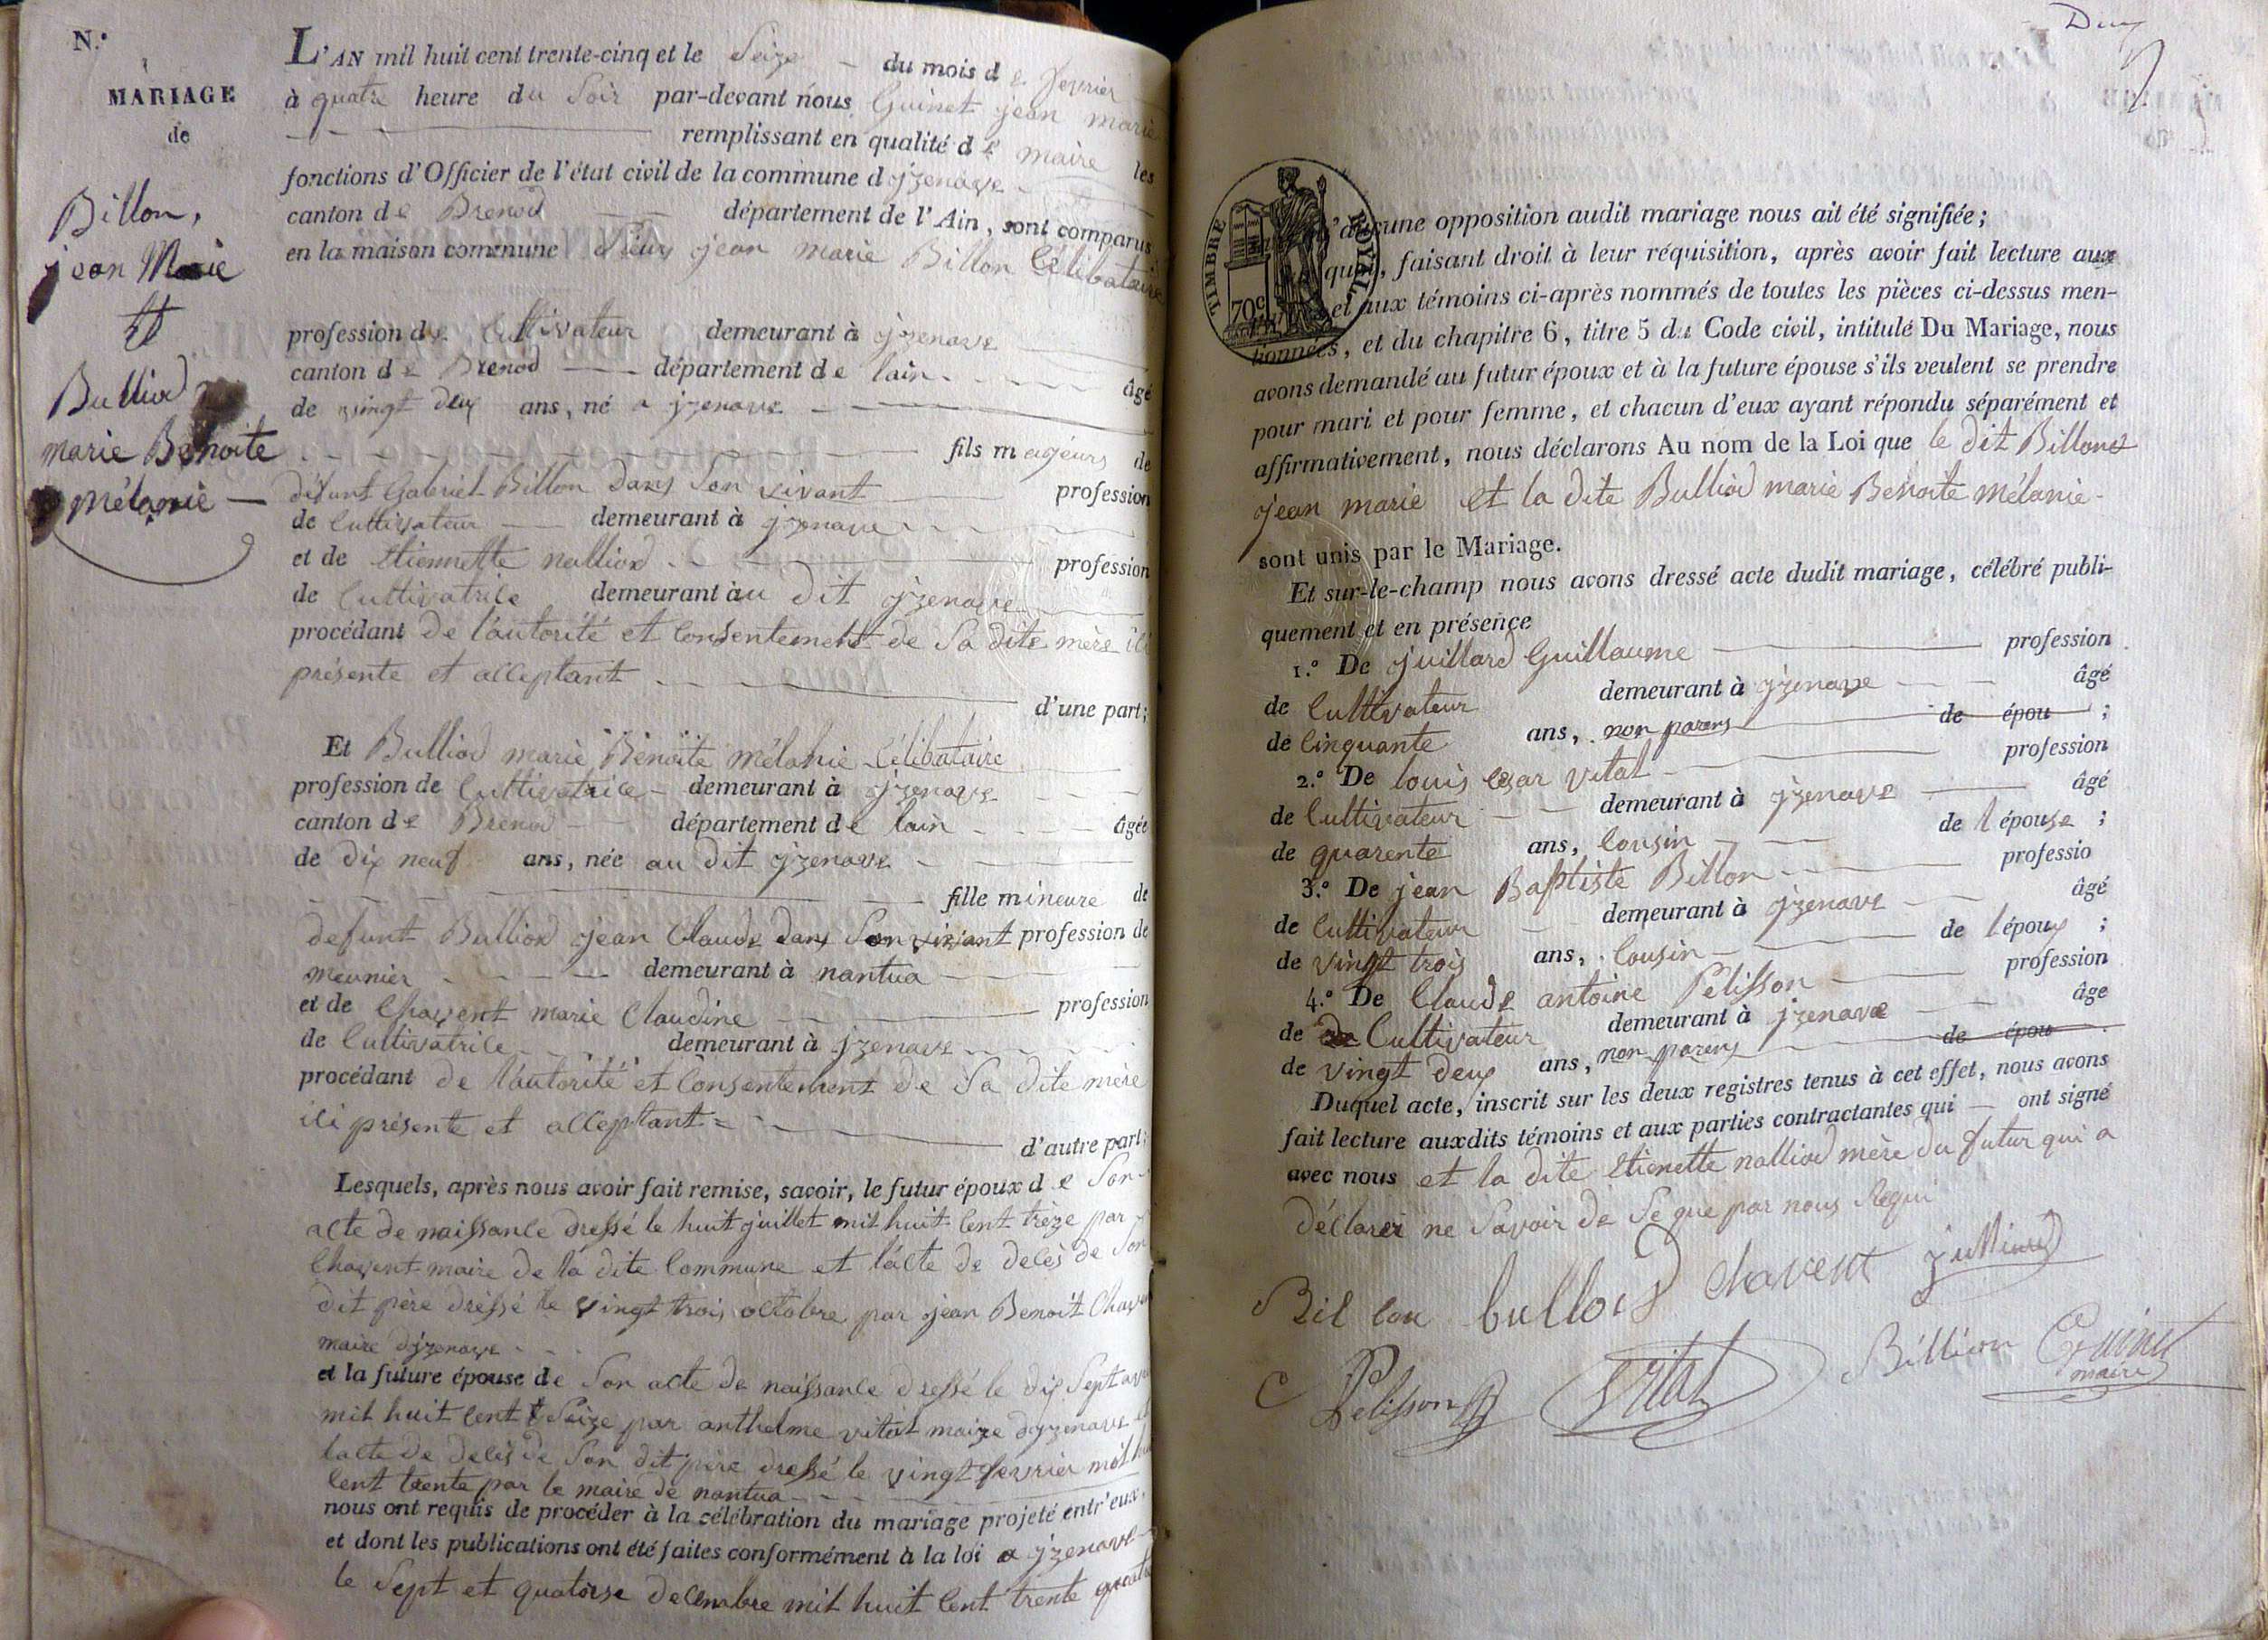 N.°
MARIAGE
de
Billon,
jean Marie
et
Bulliod
marie Benoite
mélanie
L'AN mil huit cent trente-cinq et le Seize du mois de fevrier
à quatre heure du Soir par-devant nous Guinet jean marie
remplissant en qualité de maire les
fonctions d'Officier de l'état civil de la commune d jzenave
canton de Brenod département de l'Ain, sont comparus
en la maison commune Sieur jean marie Billon Célibataire
profession de Cultivateur demeurant à jzenave
canton de Brenod département de lain âgé
de vingt deux ans, né a jzenave
fils majeurs de
défunt Gabriel Billon dans Son vivant profession
de Cultivateur demeurant à jzenave
et de Etiennette nalliod profession
de Cultivatrice demeurant àu dit jzenave
procédant de l'autorité et Consentement de Sa dite mère ici
présente et acceptant
d'une part;
Et Bulliod marie Benoite mélanie Célibataire
profession de Cultivatrice demeurant à jzenave
canton de Brenod département de lain âgée
de dix neuf ans, née au dit jzenave
fille mineure de
defunt Bulliod jean Claude dans Son vivant profession de
meunier demeurant à nantua
et de Chavent marie Claudine profession
de Cultivatrice demeurant à jzenave
procédant de l'autorité et Consentement de Sa dite mère
ici présente et acceptant
d'autre part;
Lesquels, après nous avoir fait remise, savoir, le futur époux de Son
acte de naissance dressé le huit juillet mil huit Cent treize par
Chavent maire de la dite Commune et l'acte de décès de Son
dit père dréssé le vingt trois octobre par jean Benoit
maire djzenave
et la future épouse de Son acte de naissance dressé le dix Sept
mil huit Cent Seize par anthelme vital maire djzenave
lacte de decès de Son dit père dressé le vingt fevrier mil
Cent trente par le maire de nantua
nous ont requis de procéder à la célébration du mariage projeté entr'eux,
et dont les publications ont été faites conformément à la loi a jzenave
le Sept et quatorse decembre mil huit Cent trente quatre
TIMBRE ROYAL
70c
d'aucune opposition audit mariage nous ait été signifiée;
que, faisant droit à leur réquisition, après avoir fait lecture aux
et aux témoins ci-après nommés de toutes les pièces ci-dessus men-
tionnées, et du chapitre 6, titre 5 du Code civil, intitulé Du Mariage, nous
avons demandé au futur époux et à la future épouse s'ils veulent se prendre
pour mari et pour femme, et chacun d'eux ayant répondu séparément et
affirmativement, nous déclarons Au nom de la Loi que le dit Billon
jean marie et la dite Bulliod marie Benoite mélanie
sont unis par le Mariage.
Et sur-le-champ nous avons dressé acte dudit mariage, célébré publi-
quement et en présence
1.° De juillard Guillaume profession
de Cultivateur demeurant à jzenave âgé
de Cinquante ans, non parens de épou ;
2.° De louis César vital profession
de Cultivateur demeurant à jzenave âgé
de quarente ans, Cousin de l épouse ;
3.° De jean Baptiste Billon professio
de Cultivateur demeurant à jzenave âgé
de vingt trois ans, Cousin de l époux ;
4.° De Claude antoine Pelisson profession
de Cultivateur demeurant à jzenave âgé
de vingt deux ans, non parens de épou
Duquel acte, inscrit sur les deux registres tenus à cet effet, nous avons
fait lecture auxdits témoins et aux parties contractantes qui ont signé
avec nous et la dite Etienette nalliod mère du futur qui a
déclarer ne Savoir de Se que par nous Requi
Bil lon bulliod Chavent
Pelisson Vital Billion Guinet
maire